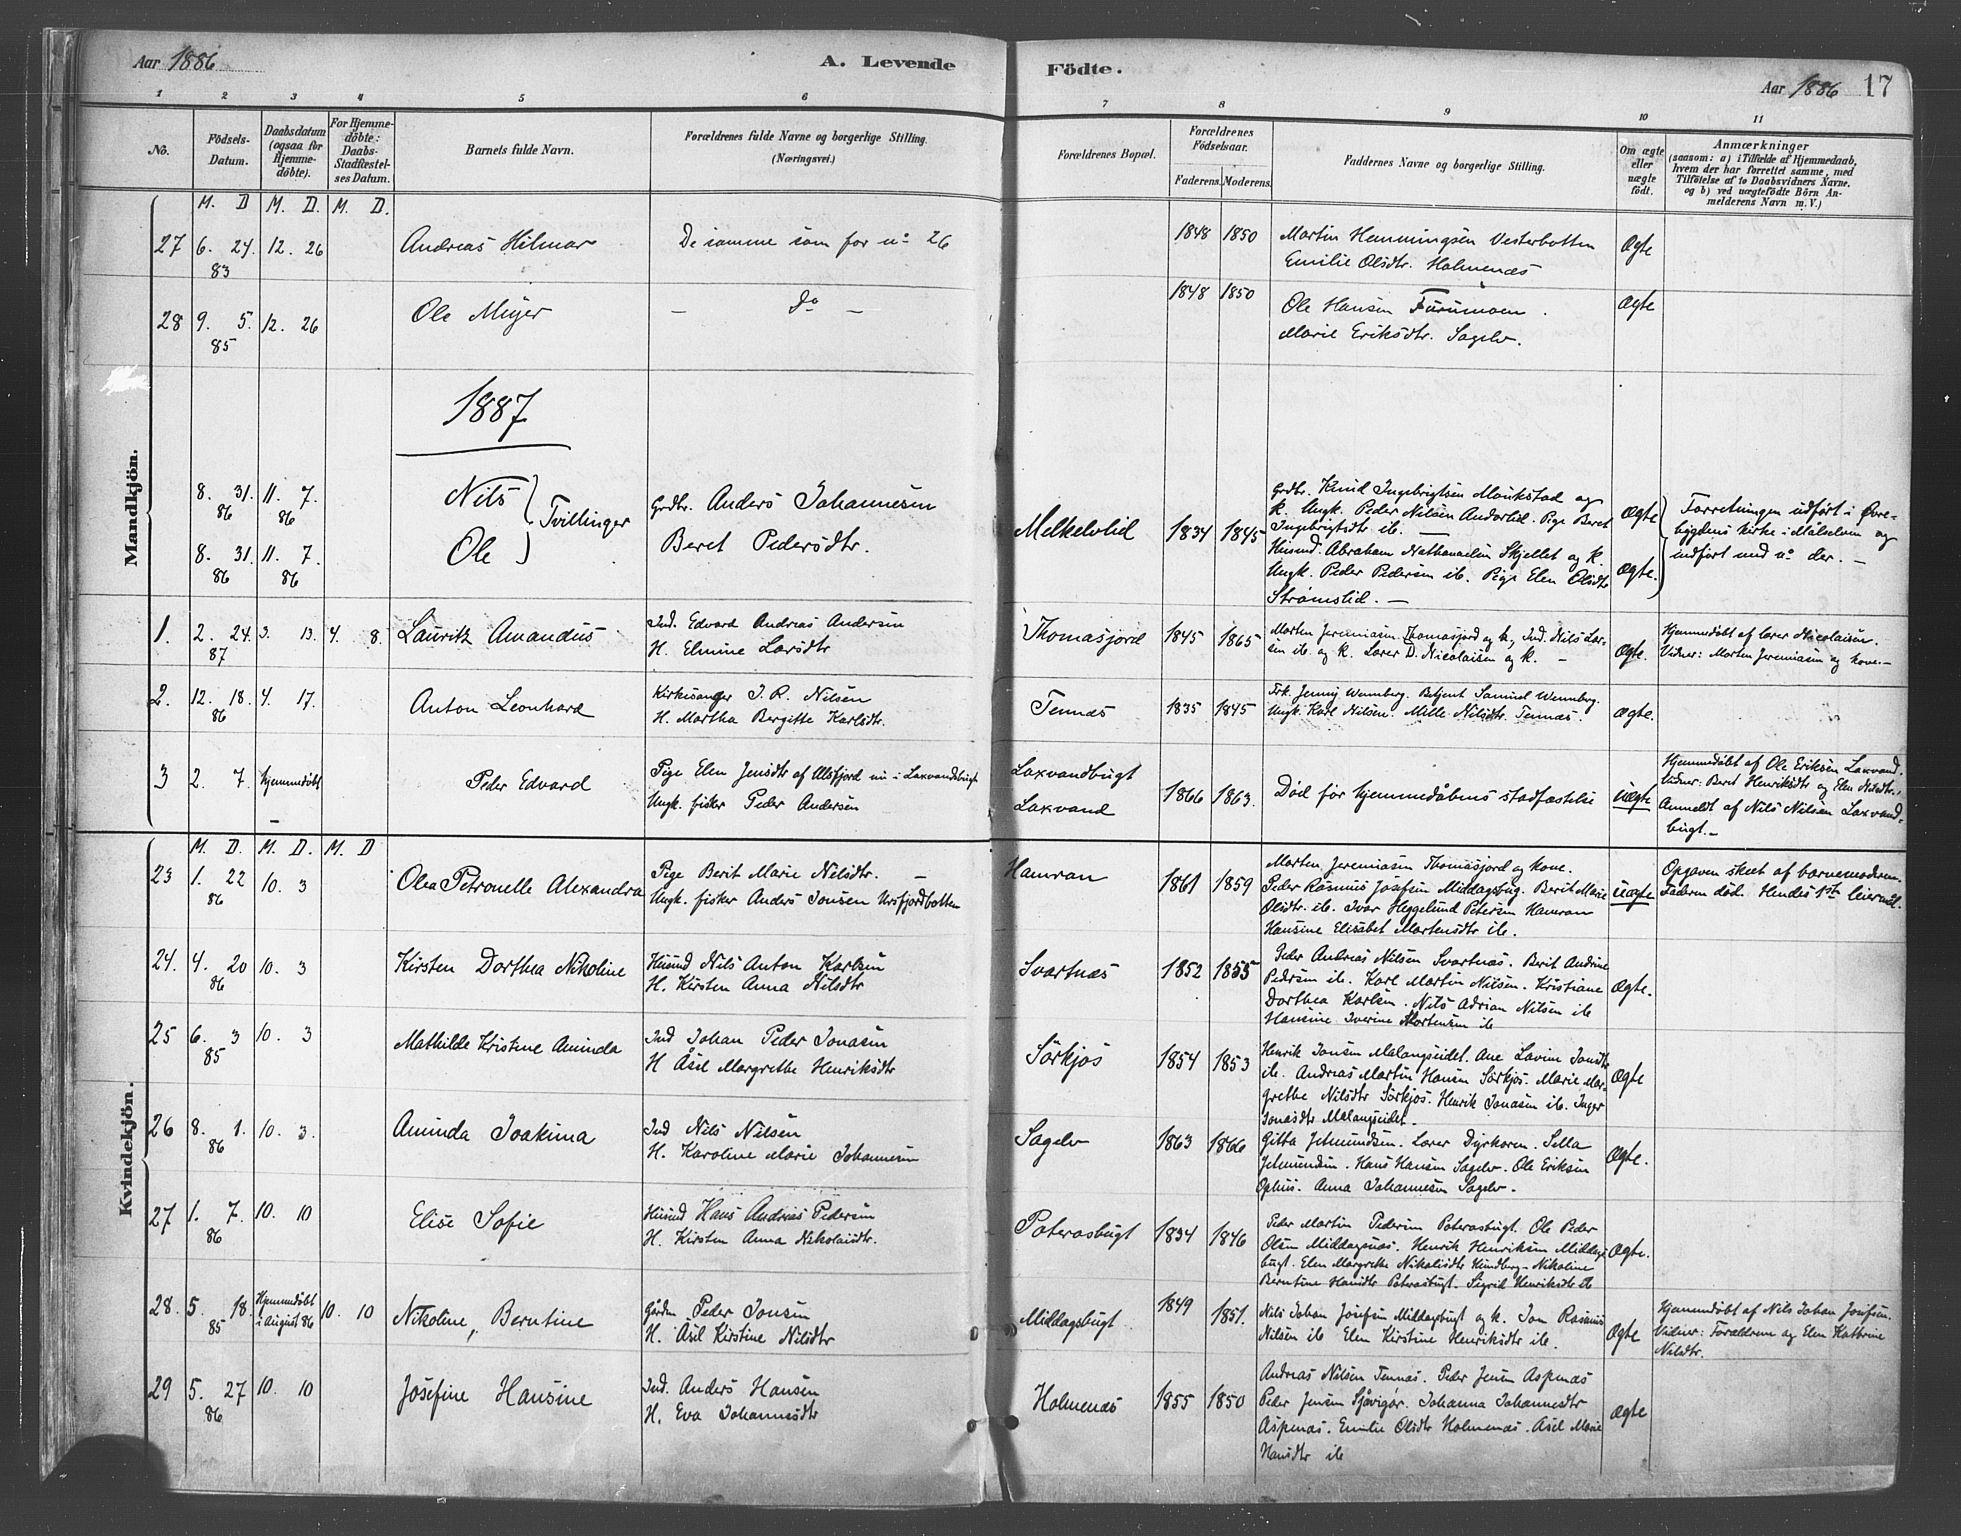 Aar 1886. A. Levende Födte. Aar 1886 17
1 2 3 4 5 6 7 8 9 10 11
No. Födsels-Datum. Daabsdatum (ogsaa for Hjemme-döbte). For Hjemme-döbte: Daabs-Stadfæstel-ses Datum. Barnets fulde Navn. Forældrenes fulde Navne og borgerlige Stilling. (Næringsvei.) Forældrenes Bopæl. Forældrenes Födselsaar. Faderens. Moderens. Faddernes Navne og borgerlige Stilling. Om ægte eller uægte födt. Anmærkninger (saasom: a) i Tilfælde af Hjemmedaab, hvem der har forrettet samme, med Tilföielse af to Daabsvidners Navne, og b) ved uægtefödte Börn An-melderens Navn m. V.)
Mandkjön.
M. D M. D. M. D.
27 6. 24. 83 12. 26 Andreas Hilmar De samme som for no 26 1848 1850 Martin Hemmingsen Vesterbotten
Emilie Olsdtr. Holmenæs Ægte
28 9. 5. 85 12. 26 Ole Meyer — Do — 1848 1850 Ole Hansen Furumoen.
Marie Eriksdtr. Sagelv. Ægte
1887
8. 31. 86 11. 7. 86 Nils
8. 31. 86 11. 7. 86 Ole
Tvillinger
Grdbr. Anders Johannesen
Beret Pedersdtr.
Melkelvlid 1834 1845
Grdbr. Knud Ingebrigtsen Moukstad og
k. Ungk. Peder Nilsen Andorlid. Pige Beret
Ingebrigtsdtr. ib. —
Husmd. Abraham Nathanaelsen Skjellet og k.
Ungk. Peder Pedersen ib. Pige Elen Olsdtr
Strømslid. —
Ægte
Ægte.
Forretningen udført i Øvre-
bygdens kirke i Målselven og
indført med no der. —
1. 2. 24. 87 3. 13. 4. 8. Lauritz Amandus Ind. Edvard Andreas Andersen
H. Elmine Larsdtr Thomasjord 1845 1865 Morten Jeremiasen Thomasjord og k, Ind. Nils Lar-
sen ib. og k. Lærer D. Nicolaisen og k. — Ægte. Hjemmedøbt af lærer Nicolaisen.
Vidner: Morten Jeremiasen og kone.—
2. 12. 18. 86 4. 17. Anton Leonhard Kirkesanger J. R. Nilsen
H. Martha Bergitte Karlsdtr. Tennæs 1835 1845 Frk. Jenny Wennberg. Betjent Samuel Wennberg.
Ungk. Karl Nilsen. Mille Nilsdtr. Tennæs. Ægte.
3 2. 7. hjemmedøbt — Peder Edvard Pige Elen Jensdtr af Ulsfjord nu i Laxvandbugt
Ungk. fisker Peder Andersen Laxvandbugt
Laxvand 1866 1863. Død før hjemmedåbens stadfæstelse Uægte Hjemmedøbt af Ole Eriksen Laxvand.
Vidner: Beret Henriksdtr og Elen Nilsdtr.
Anmeldt af Nils Nilsen Laxvand-
bugt.—
Kvindekjön.
M. D. M. D. M. D
23 1. 22 86 10. 3 Olea Petronelle Alexandra Pige Berit Marie Nilsdtr. —
Ungk. fisker Anders Jonsen Ursfjordbotten Hamran 1861 1859 Morten Jeremiasen Thomasjord og kone.
Peder Rasmus Josefsen Middagsbug. Berit Marie
Olsdtr. ib. Ivar Heggelund Petersen Hamran
Hansine Elisabet Mortensdtr ib. Uægte Opgaven skeet af barnemoderen.
Faderen død. Hendes 1ste leiermål.
24. 4. 20 86 10. 3 Kirsten Dorthea Nikoline Husmd Nils Anton Karlsen
H. Kirsten Anna Nilsdtr Svartnæs 1852 1855 Peder Andreas Nilsen Svartnæs. Berit Andrine
Pedersen ib. Karl Martin Nilsen. Kristiane
Dorthea Karlsen. Nils Adrian Nilsen ib
Hansine Iverine Mortensen ib Ægte.
25 6. 3 85 10. 3 Mathilde Kristine Aminda Ind Johan Peder Jonasen
H Åsel Margrethe Henriksdtr Sörkjos 1854 1853 Henrik Jonsen Malangseidet. Ane Lavine Jonsdtr
ib. Andreas Martin Hansen Sörkjos. Marie Mar-
grethe Nilsdtr Sörkjos. Henrik Jonasen ib. Inger
Jonasdtr Malangseidet. Ægte
26 8. 1. 86 10. 3. Aminda Joakima Ind Nils Nilsen
H. Karoline Marie Johannesen Sagelv 1863 1866 Gitta Jetmundsen. Lærer Dyrkoren. Sella
Jetmundsen. Hans Hansen Sagelv. Ole Eriksen
Ophus. Anna Johannesen Sagelv. Ægte.
27 1. 7. 86 10. 10 Elise Sofie Husmd Hans Andreas Pedersen
H. Kirsten Anna Nikolaisdtr. Poterasbugt 1834 1846 Peder Martin Pedersen Poterasbugt. Ole Peder
Olsen Middagsnæs. Henrik Henriksen Middags
bugt. Elen Margrethe Nikolisdtr Kundberg. Nikoline
Berntine Hansdtr Poterasbugt. Sigrid Henriksdtr ib Ægte.
28. 5. 18. 85 Hjemmedøbt i August 86 10. 10 Nikoline Berntine Gårdm Peder Jonsen
H. Åsel Kirstine Nilsdtr Middagsbugt 1849 1851. Nils Johan Josefsen Middagsbugt og k. Jon Rasmus
Nilsen ib Elen Kirstine Henriksdtr ib. Ægte Hjemmedøbt af Nils Johan Josefsen.
Vidner: Forældrene og Elen Kathrine
Nilsdtr.
29 5. 27 86 10. 10 Josefine Hansine Ind. Anders Hansen
H. Eva Johannesdtr Holmenæs 1855 1850 Andreas Nilsen Tennæs. Peder Jensen Aspenæs
Peder Jensen Sjåvigør. Johanna Johannesdtr
Aspenæs. Emilie Olsdtr Holmenæs. Asel Marie
Hansdtr ib Ægte